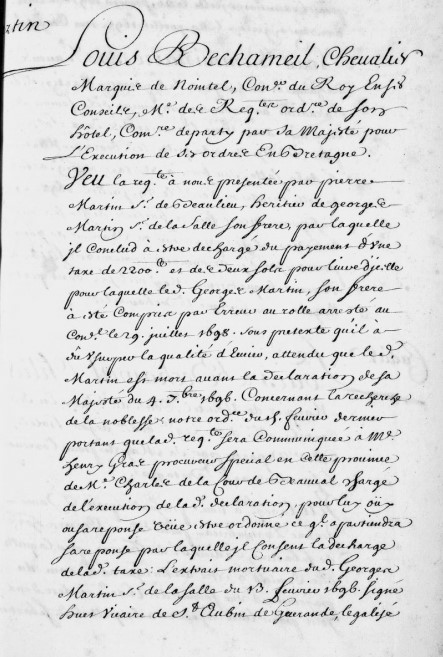 Martin
Louis Bechameil, Chevalier
Marquis de Nointel, Con.er du Roy En ses
Conseils, M.e des Req.tes ord.re de son
hôtel, Com.re departy par Sa Majesté pour
L'Execution de ses ordres En Bretagne.
Veu la req.te à nous presentée par pierre
Martin S.r de Beaulieu, heritier de georges
Martin S.r de la Salle son frere, par laquelle
jl Conclud à estre dechargé du payement d'Une
taxe de 2200.lt et des deux sols pour livre d'jcelle
pour laquelle le d. Georges Martin, son frere
a esté Compris par Erreur au rolle arresté au
Con.el le 29. juillet 1698. sous pretexte qu'il a
du Usurper la qualité d'Ecuier, attendu que le d.
Martin est mort avant la Declaration de sa
Majesté du 4. 7.bre 1696. Concernant la recherche
de la noblesse, notre ord.ce du fevrier dernier
portant que lad. req.te sera Communiquée à M.e
henry Gras procureur special en cette province
de M.e Charles de la Cour de Beauval chargé
de l'execution de la d. declaration, pour luy oüy
ou sa reponse veüe estre ordonné ce q.l apartiendra
sa reponse par laquelle jl Consent la decharge
de lad. taxe. L'extrait mortuaire du d. Georges
Martin S.r de la Salle du 13. fevrier 1696. signé
hues Vicaire de S.t Aubin de Guerande, legalisé